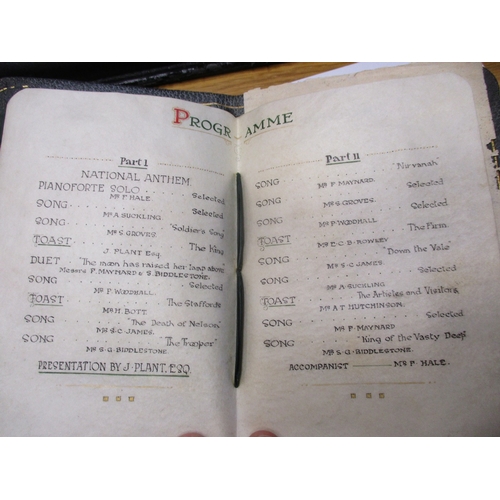 PROGRAMME
Part I
NATIONAL ANTHEM
PIANOFORTE SOLO . . . Selected
Mr F. HALE.
SONG . . . . . . Selected
Mr A. SUCKLING.
SONG . . . . "Soldier's Song"
Mr S. GROVES.
TOAST . . . . . . The King
J. PLANT Esq.
DUET "The moon has raised her lamp above"
Messrs P. MAYNARD & S. BIDDLESTONE.
SONG . . . . . . Selected
Mr P. WOODHALL.
TOAST . . . . . The Staffords
Mr H. BOTT.
SONG . . . "The Death of Nelson"
Mr S.C. JAMES.
SONG . . . . . "The Trooper"
Mr S.G. BIDDLESTONE.
PRESENTATION BY J. PLANT, ESQ.
Part II
SONG . . . . . . "Nirvanah"
Mr P. MAYNARD.
SONG . . . . . . Selected
Mr S. GROVES.
SONG . . . . . . Selected
Mr P. WOODHALL
TOAST . . . . . . The Firm
Mr E.C.B. ROWLEY
SONG . . . . "Down the Vale"
Mr S.C. JAMES.
SONG . . . . . . Selected
Mr A. SUCKLING
TOAST . . The Artistes and Visitors
Mr A.T. HUTCHINSON.
SONG . . . . . . Selected
Mr P. MAYNARD
SONG . . "King of the Vasty Deep"
Mr S.G. BIDDLESTONE.
ACCOMPANIST — Mr P. HALE.